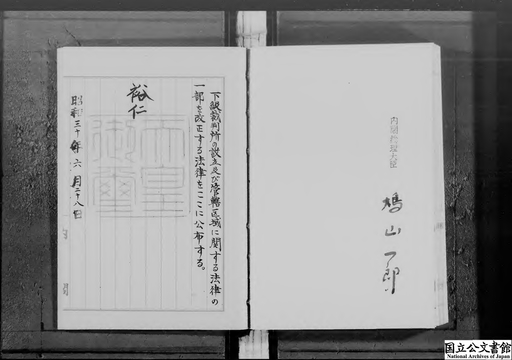 下級裁判所の設立及び管轄区域に関する法律の
一部を改正する法律をここに公布する。
裕仁
天皇
御璽
昭和三十年六月二十八日
内閣総理大臣
鳩山一郎
国立公文書館
National Archives of Japan